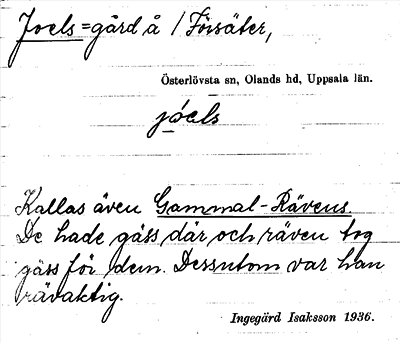 Joels=gård å / Försäter,
Österlövsta sn, Olands hd, Uppsala län.
jóels
Kallas även Gammal-Rävens.
De hade gäss där och räven tog
gäss för dem. Dessutom var han
rävaktig.
Ingegärd Isaksson 1936.